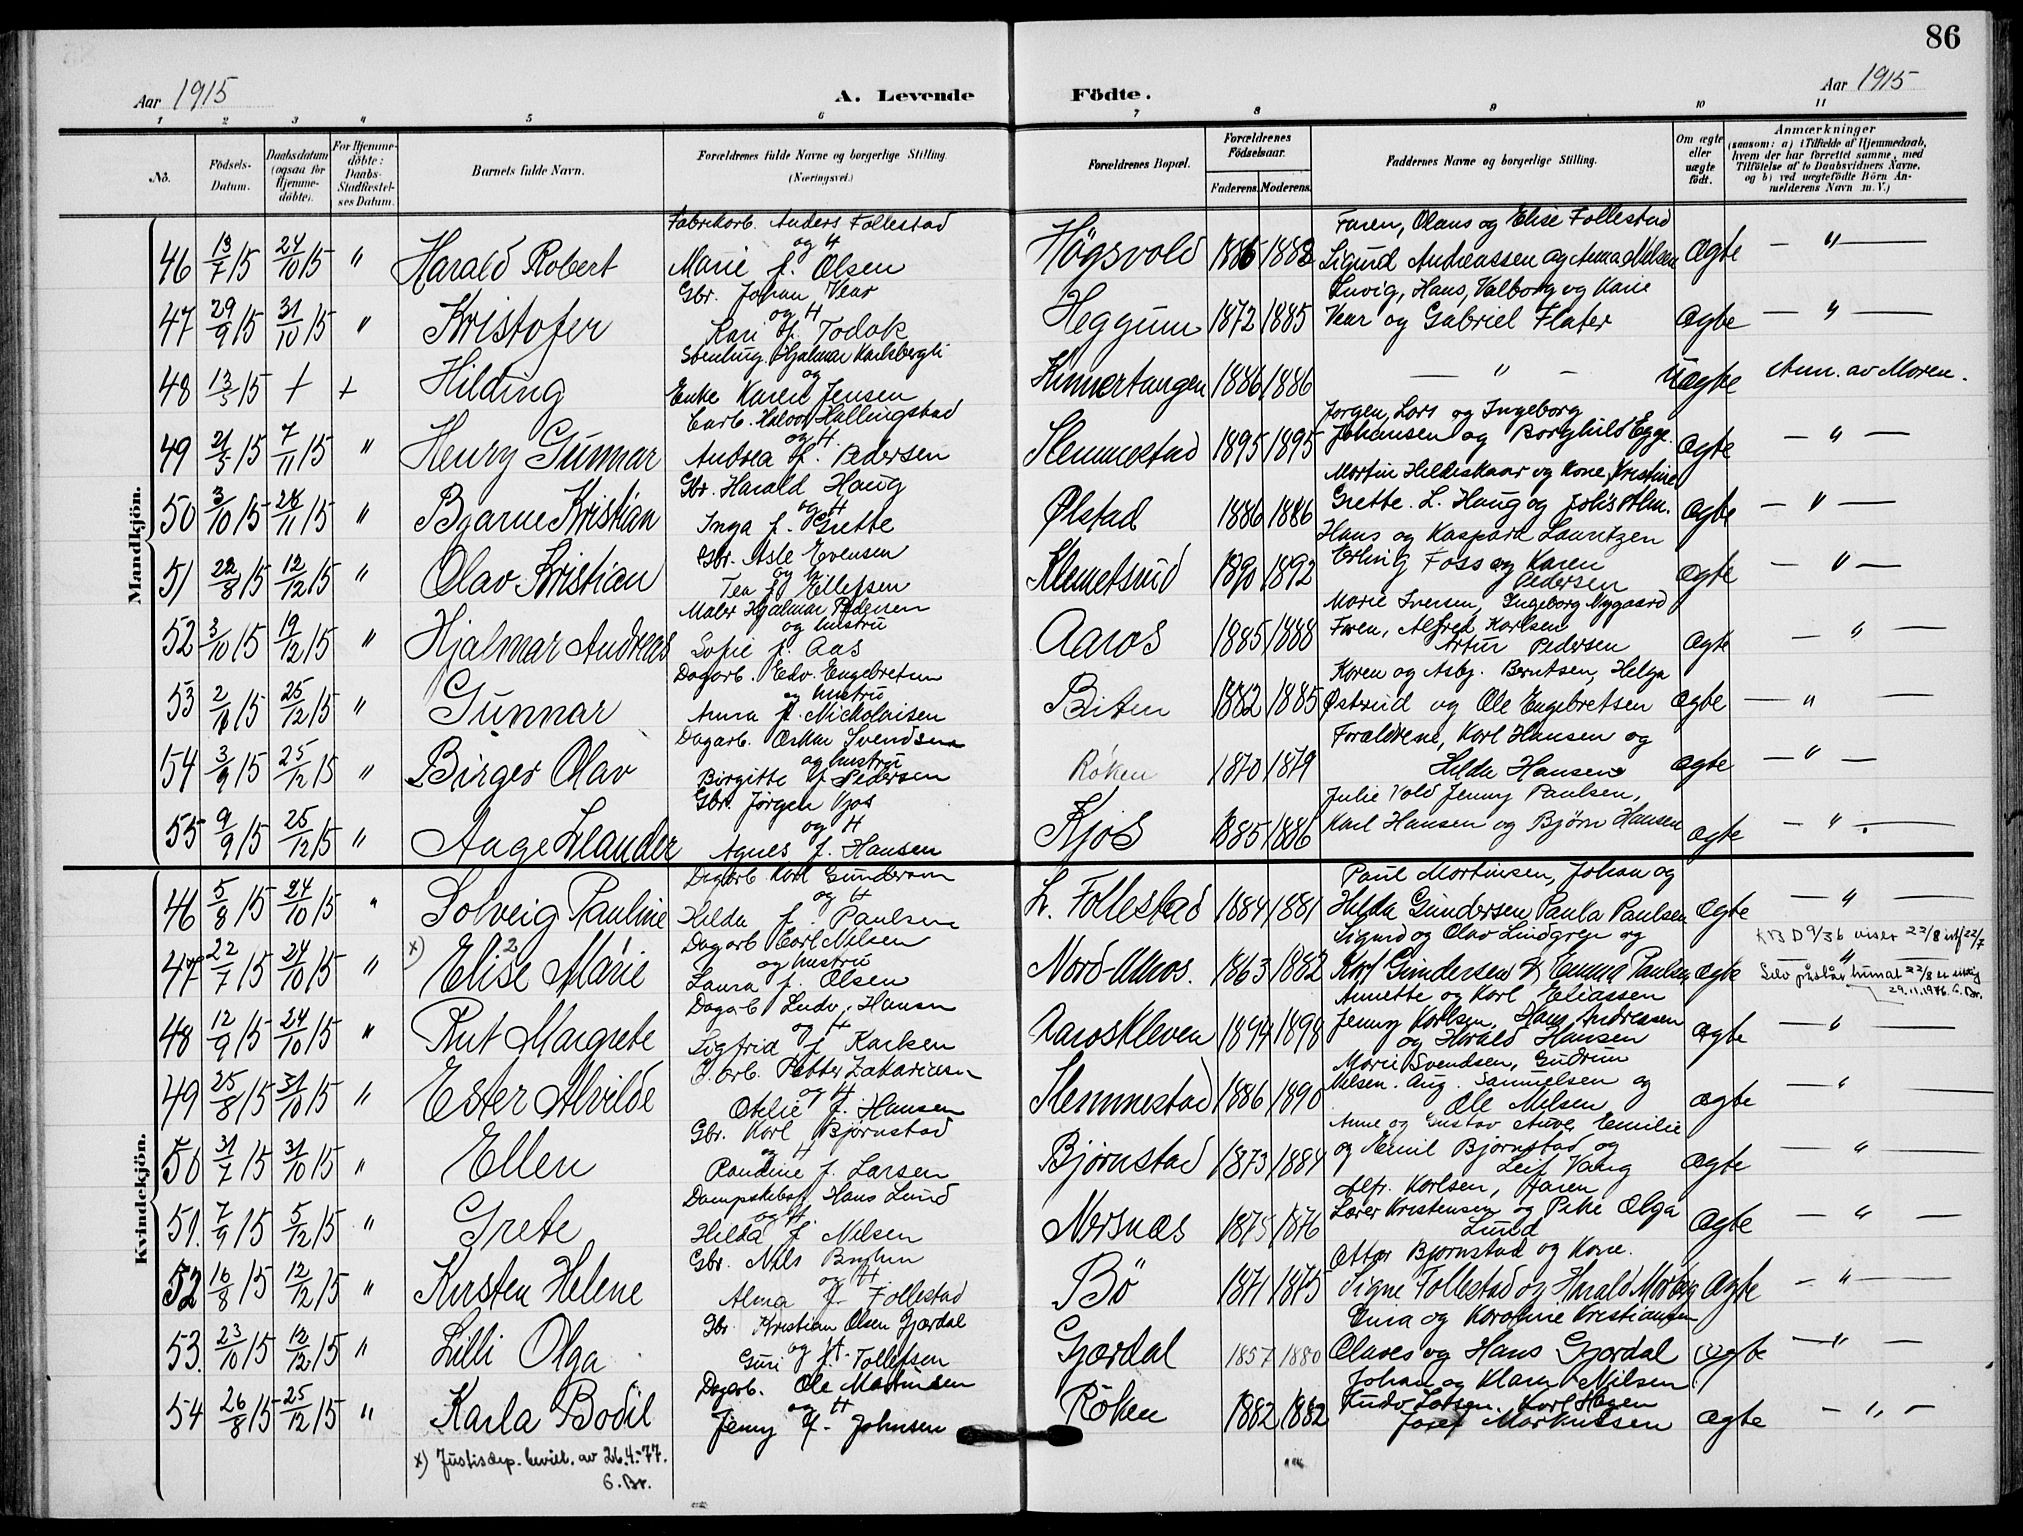 86
Aar 1915
A. Levende Födte.
Aar 1915
1 2 3 4 5 6 7 8 9 10 11
No.
Födsels-Datum.
Daabsdatum (ogsaa for Hjemmedöbte).
For Hjemmedöbte: Daabs-Stadfæstelses Datum.
Barnets fulde Navn.
Forældrenes fulde Navne og borgerlige Stilling.
(Næringsvei.)
Forældrenes Bopæl.
Forældrenes Födselsaar.
Faderens. Moderens.
Faddernes Navne og borgerlige Stilling.
Om ægte eller uægte födt.
Anmærkninger
(saasom: a) i Tilfælde af Hjemmedaab, hvem der har forrettet samme, med Tilföielse af to Daabsvidners Navne, og b) ved uægtefödte Börn Anmelderens Navn m. V.)
Mandkjön.
Fabrikarb. Anders Follestad
Faren, Olaus og Elise Follestad
og H
46 13/7 15 24/10 15 " Harald Robert Marie f. Olsen Högsvold 1886 1882 Sigurd Andreassen og Anna Nilsen ægte — " —
Gbr. Johan Vear
Luvig, Hans, Valborg og Karie
og H
47 29/9 15 31/10 15 " Kristofer Kari f. Todok Heggum 1872 1885 Vear og Gabriel Flater ægte — " —
Stenhug. Hjalmar Karlsbergli
og
48 13/5 15 + + Hilding Enke Karen Jensen Kinnertangen 1886 1886 — " — uægte Anm. av Moren.
Earb. Halvor Hallingstad
Jorgen, Lars og Ingeborg
og H.
49 21/5 15 7/11 15 " Henry Gunnar Andrea f. Pedersen Slemmestad 1895 1895 Johansen og Borghild Egge. ægte — " —
Gbr. Harald Haug
Martin Hildeskaar og Kone, Kristine
og H
50 3/10 15 28/11 15 " Bjarne Kristian Inga f. Grette Ølstad 1886 1886 Grette. L. Haug og Johs Alm. ægte — " —
Gbr. Asle Evensen
Hans og Kaspara Lauritzen
og H
51 22/8 15 12/12 15 " Olav Kristian Tea f. Ellefsen Klemetsrud 1890 1892 Erling Foss og Karen Pedersen ægte — " —
Maler Hjalmar Pedersen
Marie Iversen, Ingeborg Nygaard
og hustru
52 3/10 15 19/12 15 " Hjalmar Andreas Sofie f. Aas Aaros 1885 1888 Faren, Alfred Karlsen Artur Pedersen ægte — " —
Dagarb. Edv. Engebretsen
Karen og Asbj. Berntsen, Helga
og hustru
53 2/11 15 25/12 15 " Gunnar Anna f. Nickolaisen Biten 1882 1885 Østerud og Ole Engebretsen ægte — " —
Dagarb. Oskar Svendsen
Foraldrene, Karl Hansen og
og hustru
54 3/9 15 25/12 15 " Birger Olav Birgitte f. Pedersen Röken 1870 1879 Hilda Hansen ægte — " —
Gbr. Jørgen Kjos
Julie Vold Jenny Paulsen,
og H
55 9/9 15 25/12 15 " Aage Leander Agnes f. Hansen Kjos 1885 1886 Karl Hansen og Bjørn Hansen ægte — " —
Kvindekjön.
Dagarb. Karl Gundersen
Paul Martinsen, Johan og
og H
46 5/8 15 24/10 15 " Solveig Pauline Hilda f. Paulsen L. Follestad 1884 1881 Hilda Gundersen Paula Paulsen ægte — " —
Dagarb Carl Nilsen
Sigurd og Olav Lindgren og
KB D 9/36 viser 22/8 istf 22/7
og hustru
47 22/7 15 24/10 15 " x) Elise 2 Marie Laura f. Olsen Nord-Aaros. 1863 1882 Karl Gundersen & Emma Paulsen ægte "
29.11.1976. G. Br.
Dagarb Ludv. Hansen
Annette og Karl Eliassen
og H
48 12/9 15 24/10 15 " Rut Margrete Sigfrid f. Karlsen Aaroskleven 1894 1898 Jenny Karlsen, Hans Andreasen og Harald Hansen ægte — " —
Petter Zakariasen
Marie Svendsen, Gudrun
og H
49 25/8 15 31/10 15 " Ester Alvilde Otelie f. Hansen Slemmestad 1886 1890 Nilsen. Aug. Samuelsen og Ole Nilsen ægte — " —
Gbr. Karl Bjørnstad
Anne og Gustav Auve, Emilie
og H
50 31/7 15 31/10 15 " Ellen Randine f. Larsen Bjørnstad 1873 1884 og Emil Bjørnstad og Leif Vang ægte — " —
Dampskibsf. Hans Lund
Alfr. Karlsen, Faren
og H.
51. 7/9 15 5/12 15 " Grete Hilda f. Nilsen Nersnæs 1875 1876 Lærer Kristensen og Pike Olga Lund ægte — " —
Gbr. Nils Bryhn
Ottar Bjørnstad og Kone.
og H
52 16/8 15 12/12 15 " Kirsten Helene Alma f. Follestad Bö 1871 1875 Signe Follestad og Harald Morberg ægte — " —
Gbr. Kristian Olsen Gjerdal
Tina og Karoline Kristiansen
og H.
53. 23/10 15 12/12 15 " Lilli Olga Guri f. Tollefsen Gjerdal 1857 1880 Olaves og Hans Gjerdal ægte — " —
Dagarb. Ole Martinsen
Johan og Klara Nilsen
og H
54 26/8 15 25/12 15 " Karla Bodil Jenny f. Johnsen Röken 1882 1882 Ludv. Larsen. Karl Hagen Josef Markussen ægte — " —
x) Justisdep. bevill. av 26.4.-77.
G. Br.